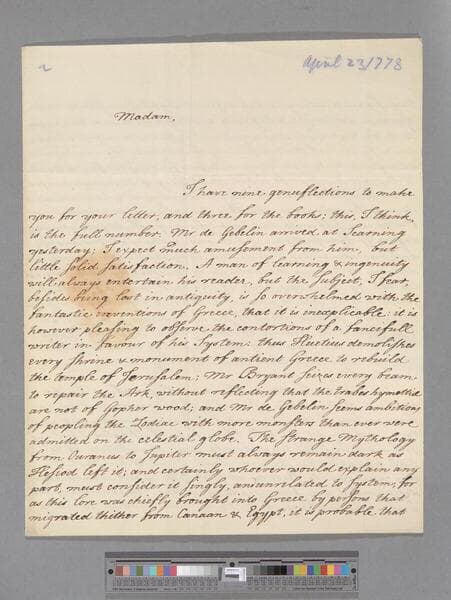 2
April 23/778
Madam,
I have nine genuflections to make
you for your letter, and three for the books; this, I think,
is the full number. Mr de Gebelin arrived at Fearning
yesterday; I expect much amusement from him, but
little solid satisfaction. A man of learning & ingenuity
will always entertain his reader, but the subject, I fear,
besides being lost in antiquity, is so overwhelmed with the
fantastic inventions of Greece, that it is inexplicable: it is
however pleasing to observe the contortions of a fancifull
writer in favour of his System: thus Huetius demolishes
every shrine & monument of antient Greece to rebuild
the temple of Jerusalem; Mr Bryant seizes every beam
to repair the Ark, without reflecting that the trabes hymettiæ
are not of Gopher wood; and Mr de Gebelin seems ambitious
of peopling the Zodiac with more monsters than ever were
admitted on the celestial globe. The strange Mythology
from Ouranus to Jupiter must always remain dark as
Hesiod left it; and certainly whoever would explain any
part, must consider it singly, as unrelated to System; for
as this lore was chiefly brought into Greece by persons that
migrated thither from Canaan & Egypt, it is probable that